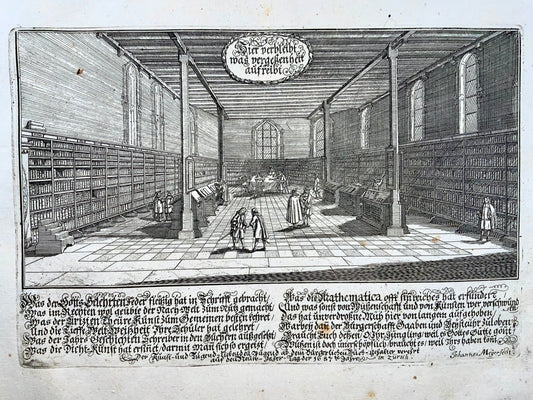 Hier verbleibt
was vergessenheit
aufreibt.
Was der Gotts-Gelehrten Feder fleißig hat in Schrifft gebracht/
Was im Rechten wol geübte der Nach-Welt zum nutz gemacht/
Was der Ärtzten Theüre Kunst zum Gemeinen besten lehret/
Und die Welt-Weißheit Ihre Schüler hat gelehret/
Was der Jahrs Geschichten Schreiber in den Büchern aufgesetzt/
Was die Dicht-Kunst hat ersinet, darmit Man sichso ergetzt/
Was die Mathematica offt sinreiches hat erfunden/
Und was sonst von Wüssenschafft und von Künsten wer verschwund
Das hat unverdroßne Müh hier von langem aufgehoben/
Warbey dan der Bürgerschafft Gaaben und Beysteüer zuloben
Braucht Euch deßen, O Ihr Jüngling, weil es Gottes Güete
Wüßen ist doch unerschöpflich, braucht es, weil Ihrs haben
Der Kunst- und Tugend- Jugend ab dem Bürgerlichen Büch-gehalter verehrt
auf den Neüw-Jahrs-Tag des 1687 Jahrs in Zürich
Johannes Meyer fecit